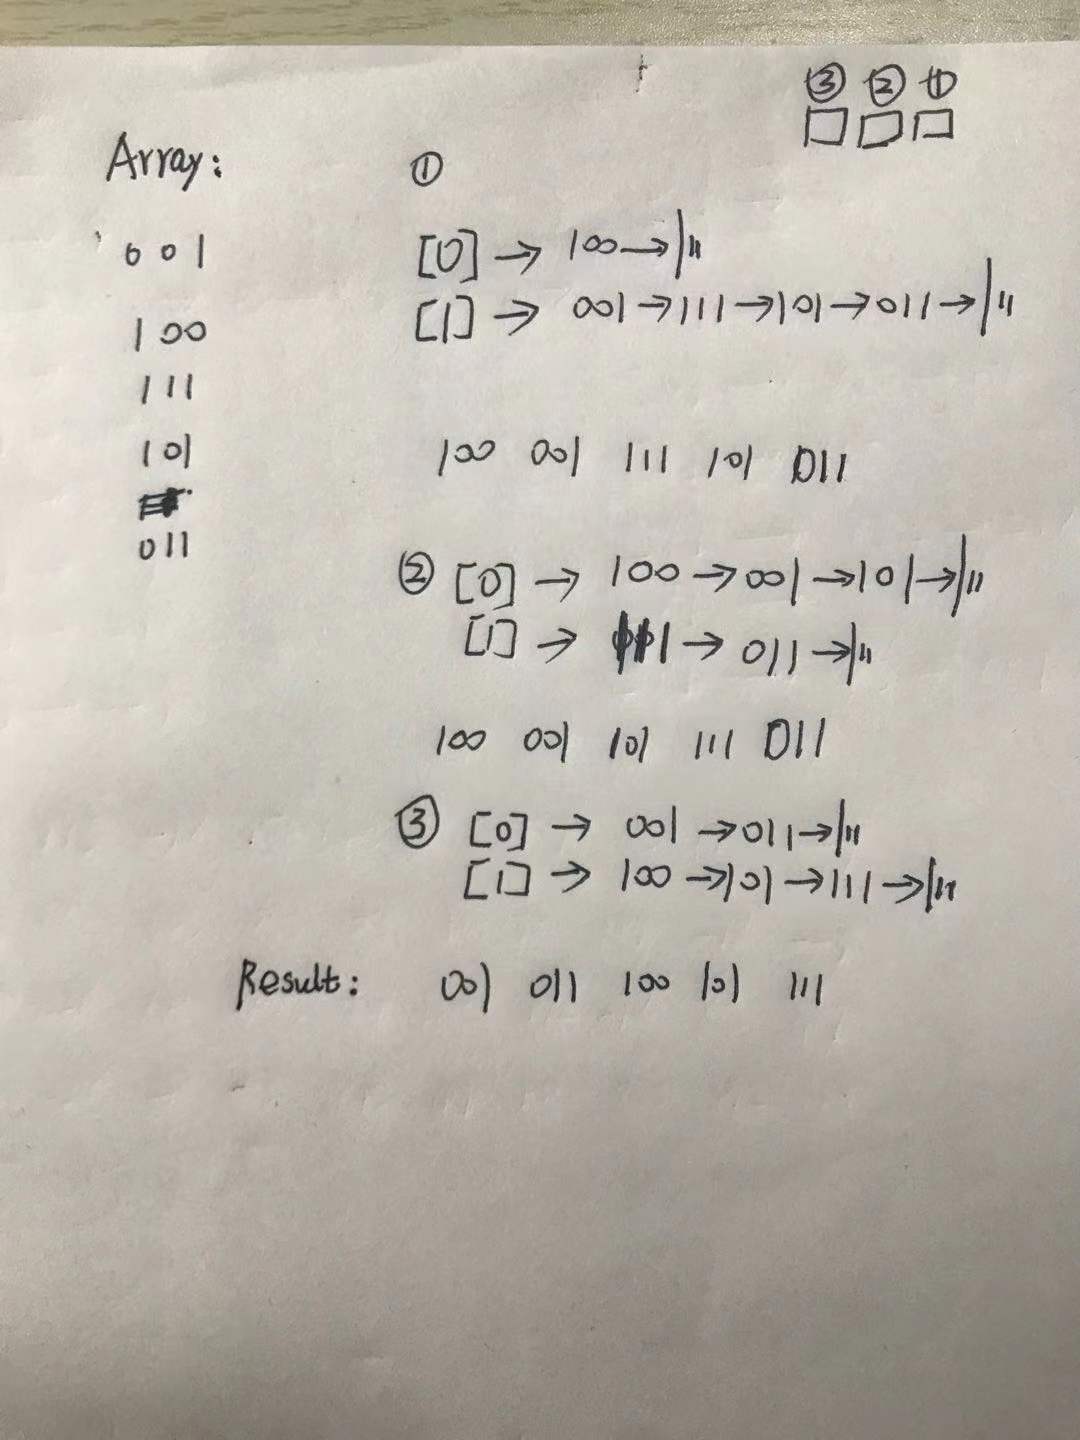 ③ ② ①
Array: ①
001
100
111
101
011
[0] → 100 →
[1] → 001 → 111 → 101 → 011 →
100 001 111 101 011
② [0] → 100 → 001 → 101 →
[1] → 111 → 011 →
100 001 101 111 011
③ [0] → 001 → 011 →
[1] → 100 → 101 → 111 →
Result: 001 011 100 101 111